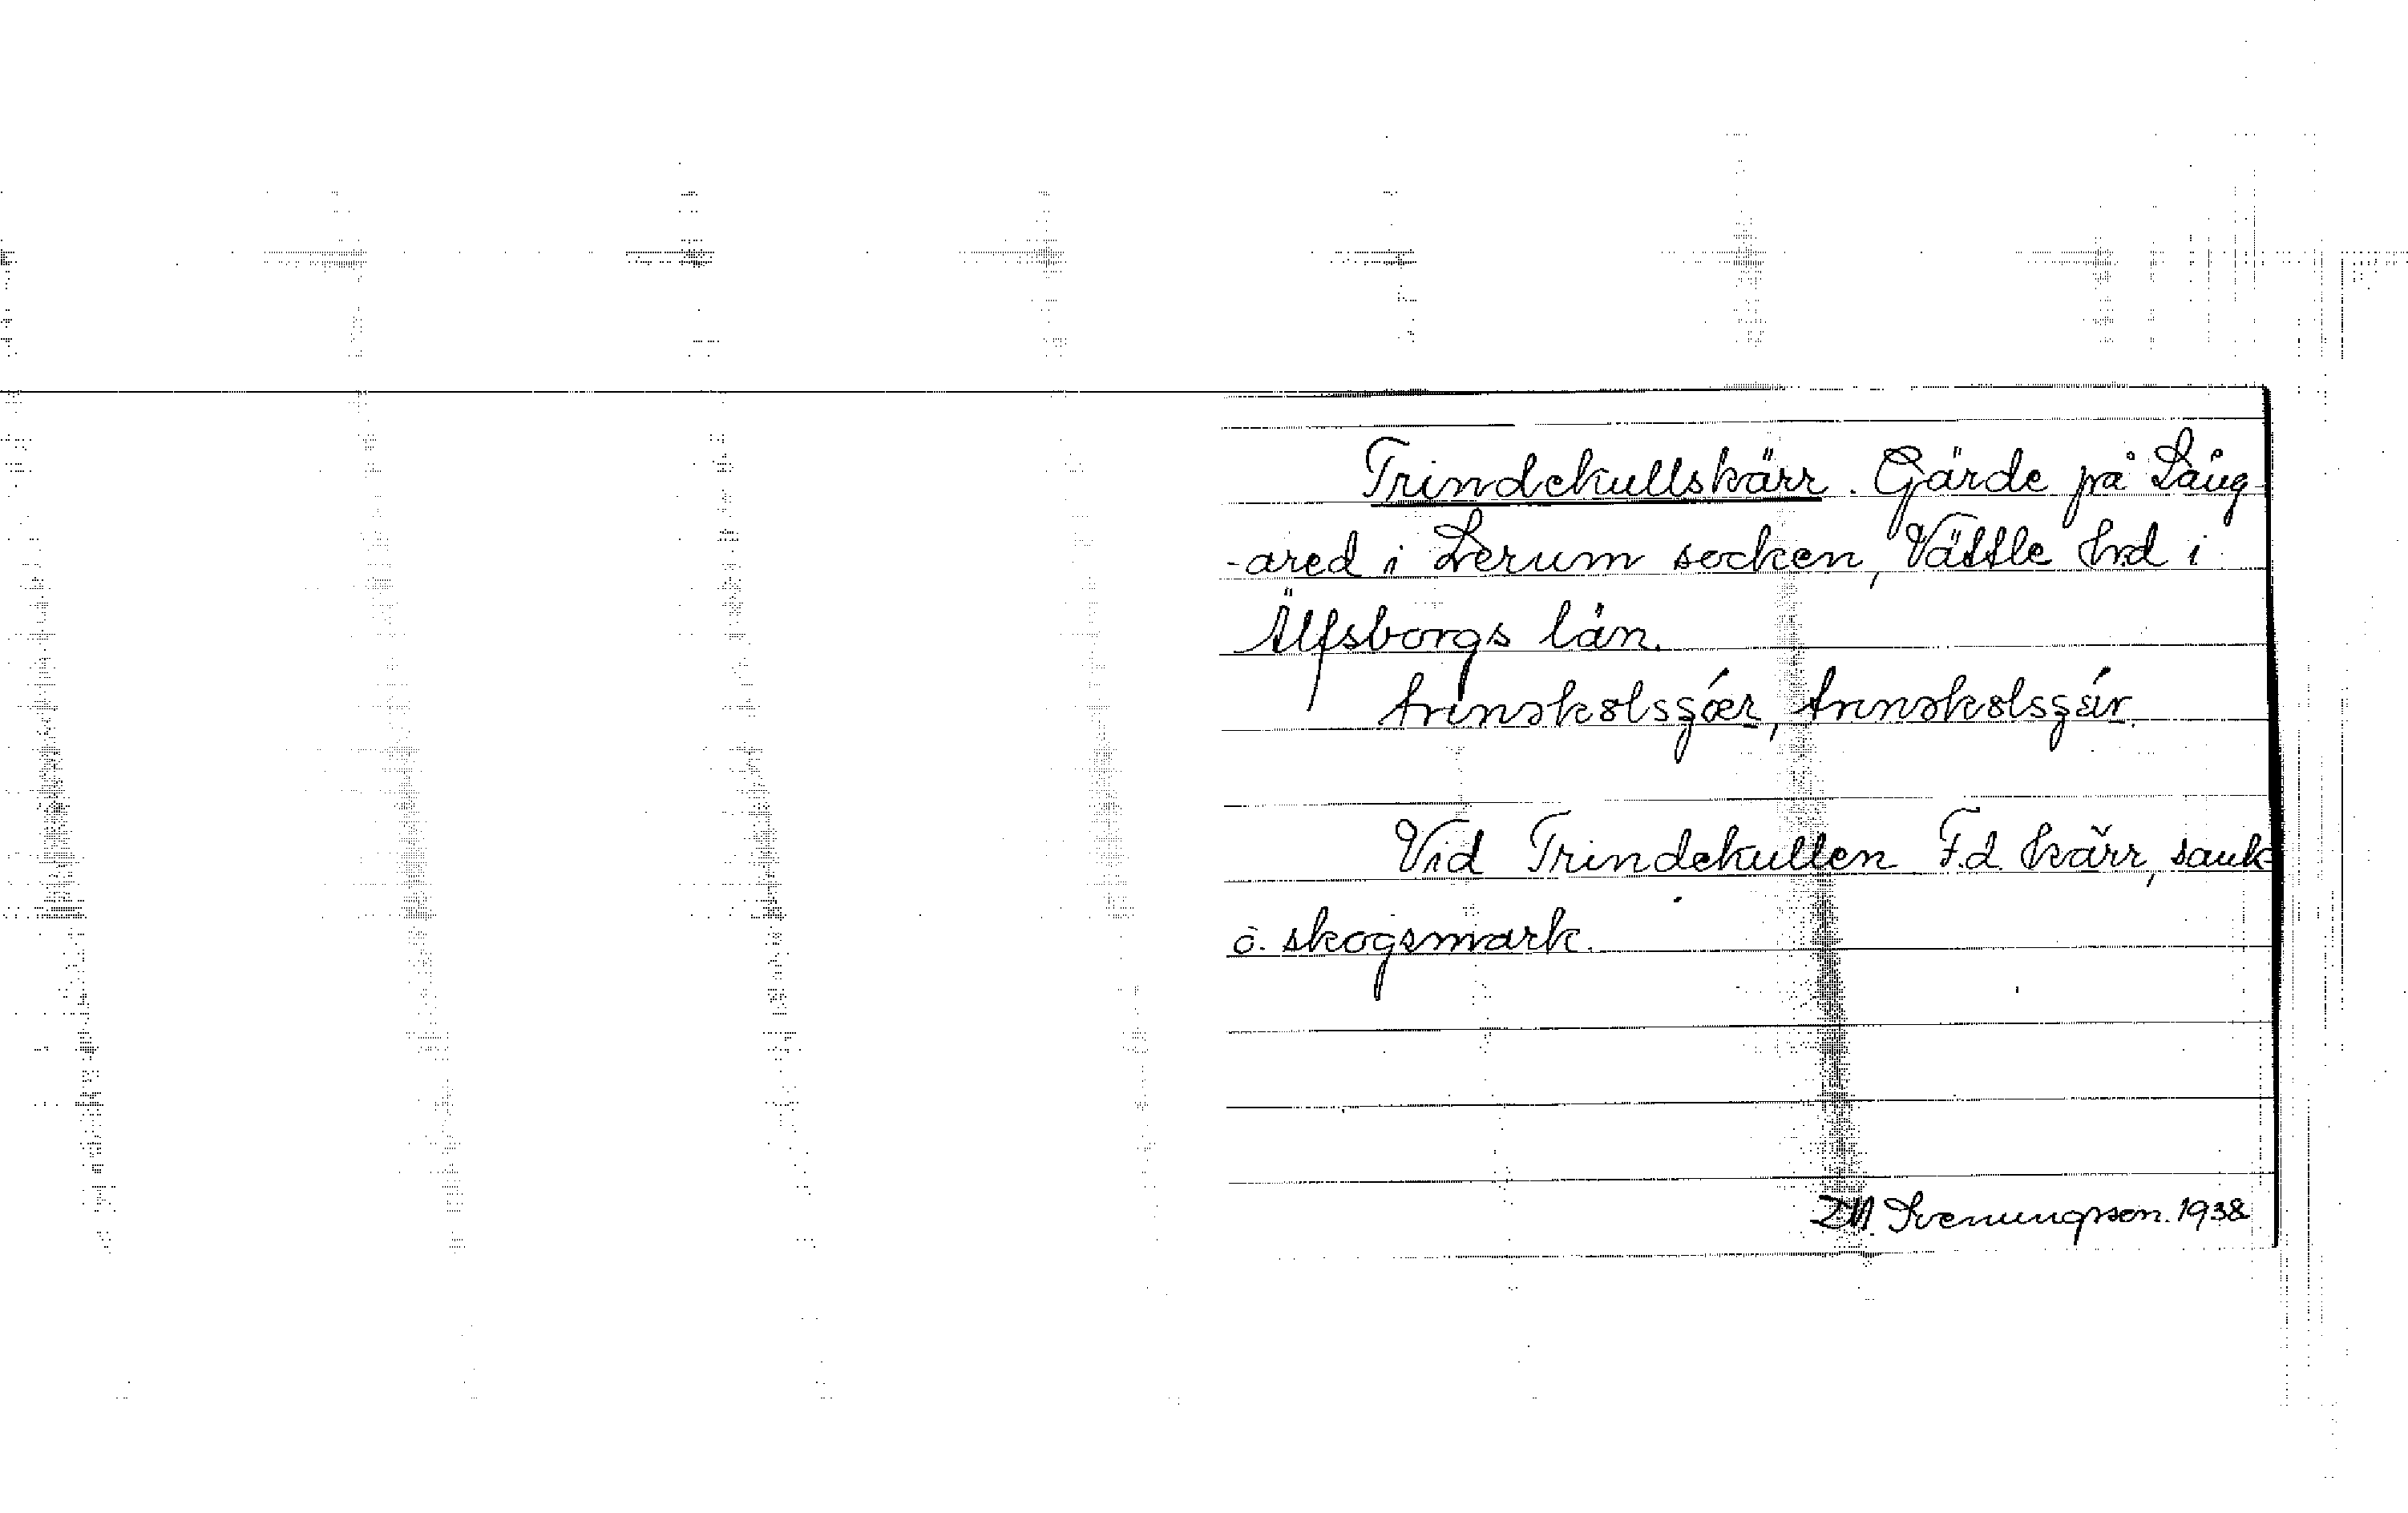 Trindekullskärr. Gärde på Lång-
-ared i Lerum socken, Vättle hd i
Älfsborgs län.
trinəkɵlsʂǽr, trinəkɵlsʂár.
Vid Trindekullen F.d. kärr, sank-
o. skogsmark.
Svenungsson. 1938